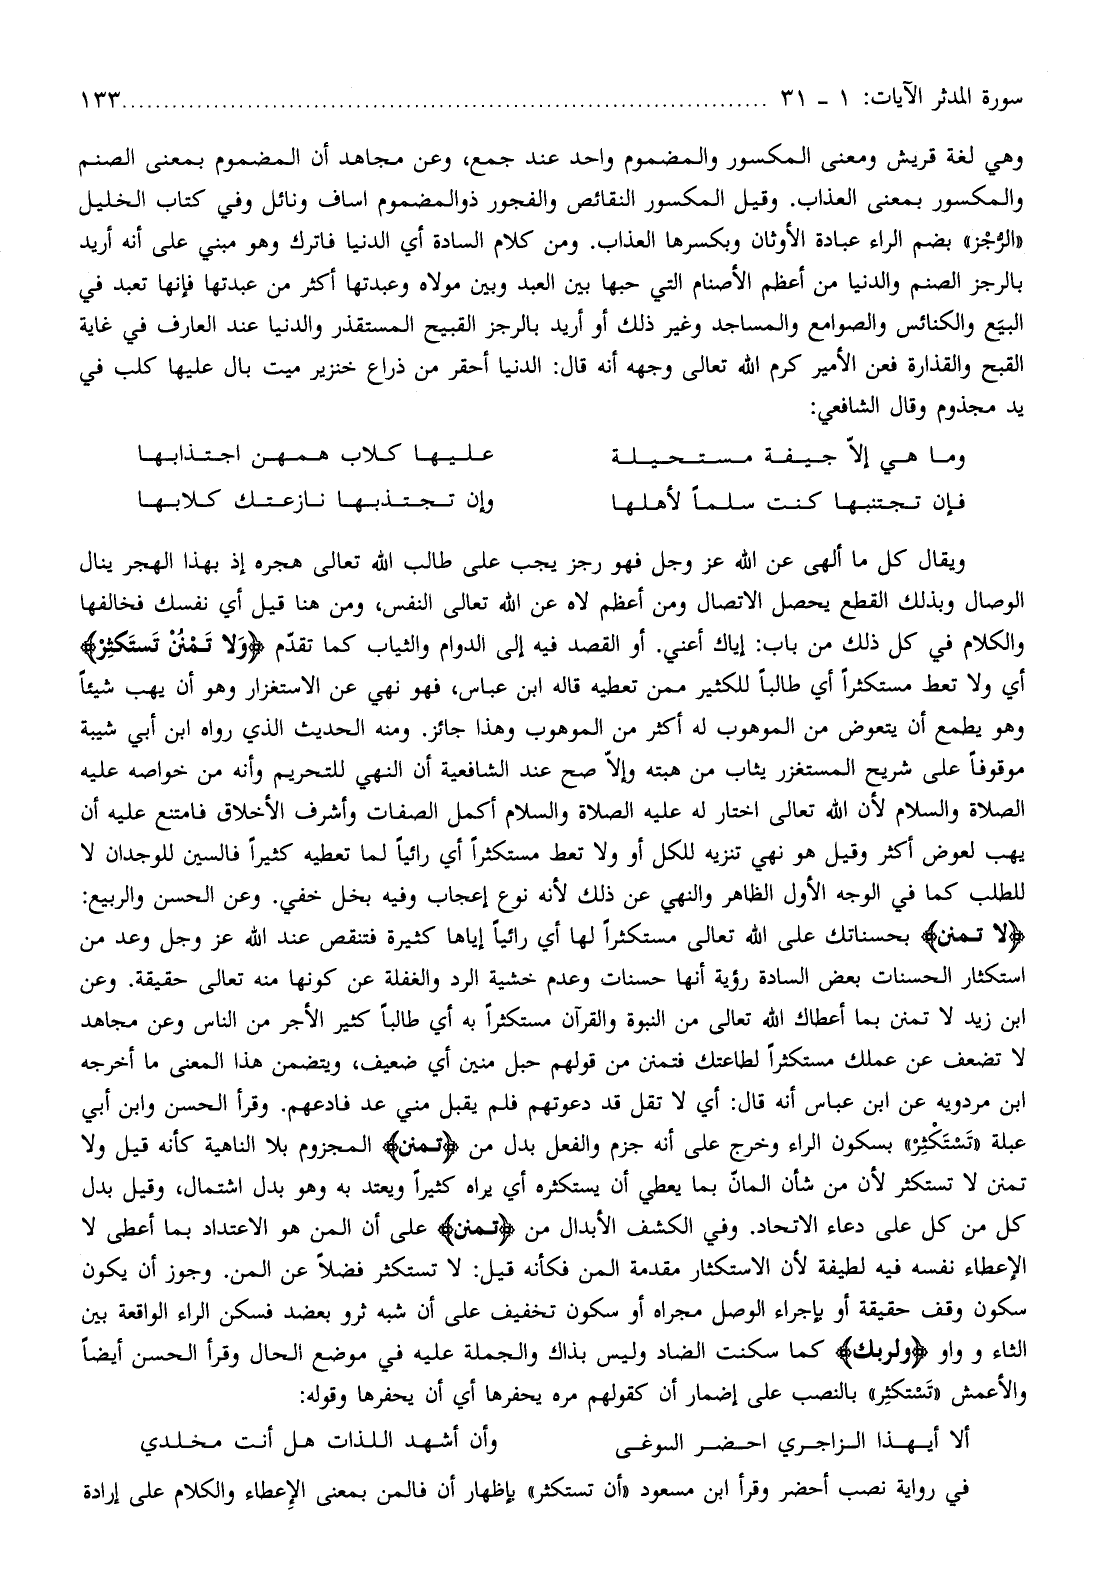 سورة المدثر الآيات: ١ - ٣١ ........................................................................... ١٣٣
وهي لغة قريش ومعنى المكسور والمضموم واحد عند جمع، وعن مجاهد أن المضموم بمعنى الصنم
والمكسور بمعنى العذاب. وقيل المكسور النقائص والفجور ذوالمضموم اساف ونائل وفي كتاب الخليل
«الرُّجْز» بضم الراء عبادة الأوثان وبكسرها العذاب. ومن كلام السادة أي الدنيا فاترك وهو مبني على أنه أريد
بالرجز الصنم والدنيا من أعظم الأصنام التي حبها بين العبد وبين مولاه وعبدتها أكثر من عبدتها فإنها تعبد في
البيَع والكنائس والصوامع والمساجد وغير ذلك أو أريد بالرجز القبيح المستقذر والدنيا عند العارف في غاية
القبح والقذارة فعن الأمير كرم الله تعالى وجهه أنه قال: الدنيا أحقر من ذراع خنزير ميت بال عليها كلب في
يد مجذوم وقال الشافعي:
وما هي إلاّ جيفة مستحيلة عليها كلاب همهن اجتذابها
فإن تجتنبها كنت سلماً لأهلها وإن تجتذبها نازعتك كلابها
ويقال كل ما ألهى عن الله عز وجل فهو رجز يجب على طالب الله تعالى هجره إذ بهذا الهجر ينال
الوصال وبذلك القطع يحصل الاتصال ومن أعظم لاه عن الله تعالى النفس، ومن هنا قيل أي نفسك فخالفها
والكلام في كل ذلك من باب: إياك أعني. أو القصد فيه إلى الدوام والثياب كما تقدّم ﴿وَلا تَمْنُنْ تَستَكثِرْ﴾
أي ولا تعط مستكثراً أي طالباً للكثير ممن تعطيه قاله ابن عباس، فهو نهي عن الاستغزار وهو أن يهب شيئاً
وهو يطمع أن يتعوض من الموهوب له أكثر من الموهوب وهذا جائز. ومنه الحديث الذي رواه ابن أبي شيبة
موقوفاً على شريح المستغزر يثاب من هبته وإلاّ صح عند الشافعية أن النهي للتحريم وأنه من خواصه عليه
الصلاة والسلام لأن الله تعالى اختار له عليه الصلاة والسلام أكمل الصفات وأشرف الأخلاق فامتنع عليه أن
يهب لعوض أكثر وقيل هو نهي تنزيه للكل أو ولا تعط مستكثراً أي رائياً لما تعطيه كثيراً فالسين للوجدان لا
للطلب كما في الوجه الأول الظاهر والنهي عن ذلك لأنه نوع إعجاب وفيه بخل خفي. وعن الحسن والربيع:
﴿لا تمنن﴾ بحسناتك على الله تعالى مستكثراً لها أي رائياً إياها كثيرة فتنقص عند الله عز وجل وعد من
استكثار الحسنات بعض السادة رؤية أنها حسنات وعدم خشية الرد والغفلة عن كونها منه تعالى حقيقة. وعن
ابن زيد لا تمنن بما أعطاك الله تعالى من النبوة والقرآن مستكثراً به أي طالباً كثير الأجر من الناس وعن مجاهد
لا تضعف عن عملك مستكثراً لطاعتك فتمنن من قولهم حبل منين أي ضعيف، ويتضمن هذا المعنى ما أخرجه
ابن مردويه عن ابن عباس أنه قال: أي لا تقل قد دعوتهم فلم يقبل مني عد فادعهم. وقرأ الحسن وابن أبي
عبلة «تَسْتَكْثِرْ» بسكون الراء وخرج على أنه جزم والفعل بدل من ﴿تمنن﴾ المجزوم بلا الناهية كأنه قيل ولا
تمنن لا تستكثر لأن من شأن المانّ بما يعطي أن يستكثره أي يراه كثيراً ويعتد به وهو بدل اشتمال، وقيل بدل
كل من كل على دعاء الاتحاد. وفي الكشف الأبدال من ﴿تمنن﴾ على أن المن هو الاعتداد بما أعطى لا
الإعطاء نفسه فيه لطيفة لأن الاستكثار مقدمة المن فكأنه قيل: لا تستكثر فضلاً عن المن. وجوز أن يكون
سكون وقف حقيقة أو بإجراء الوصل مجراه أو سكون تخفيف على أن شبه ثرو بعضد فسكن الراء الواقعة بين
الثاء و واو ﴿ولربك﴾ كما سكنت الضاد وليس بذاك والجملة عليه في موضع الحال وقرأ الحسن أيضاً
والأعمش «تَسْتكثِر» بالنصب على إضمار أن كقولهم مره يحفرها أي أن يحفرها وقوله:
ألا أيهذا الزاجري احضر الوغى وأن أشهد اللذات هل أنت مخلدي
في رواية نصب أحضر وقرأ ابن مسعود «أن تستكثر» بإظهار أن فالمن بمعنى الإعطاء والكلام على إرادة